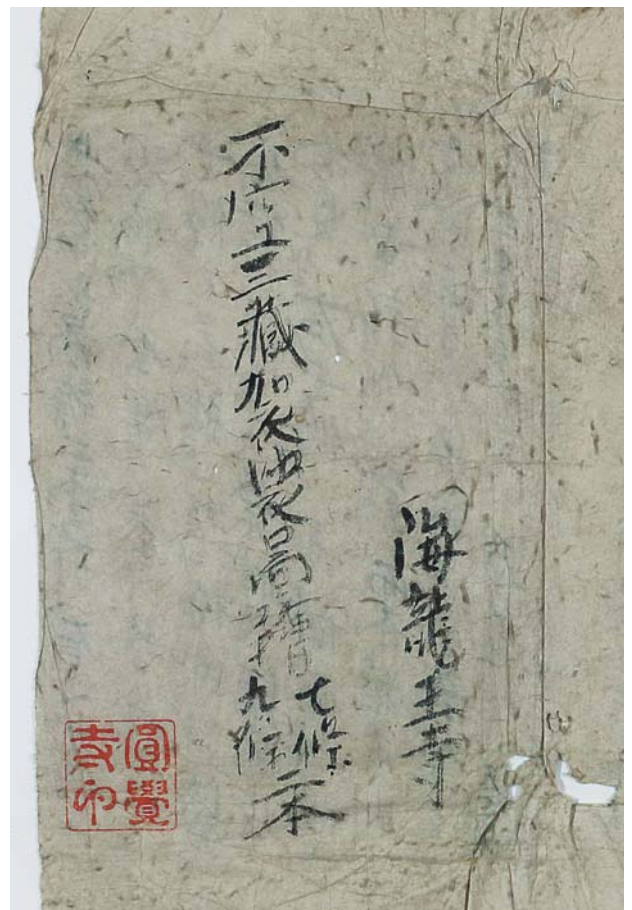 海龍王寺
不空三藏袈裟啚
七條
九條
本
圓覺寺印